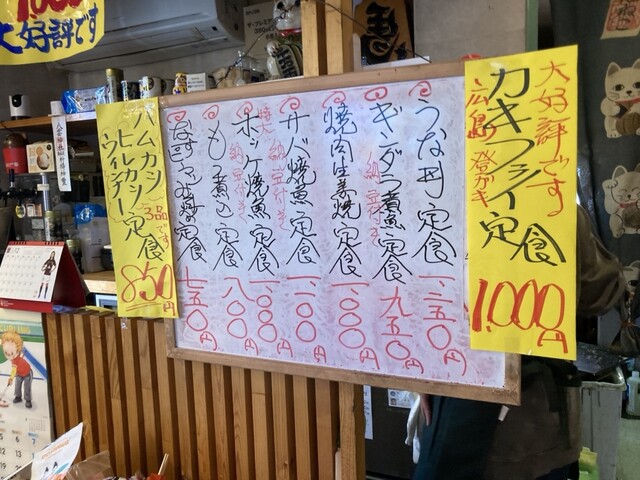 大好評です
大好評です
カキフライ定食
広島 登がキ
1,000円
うな丼定食 一、二五〇円
ギンダラ煮魚定食 納豆付き 九五〇円
焼肉生姜焼定食 一、〇〇〇円
サバ焼魚定食 一、〇〇円
特大 ホッケ焼魚定食 納豆付き 一、〇〇〇円
もつ煮込定食 八〇〇円
定食 七五〇円
ハムカツ
ヒレカツ
ウインナー
3品です
定食
850円